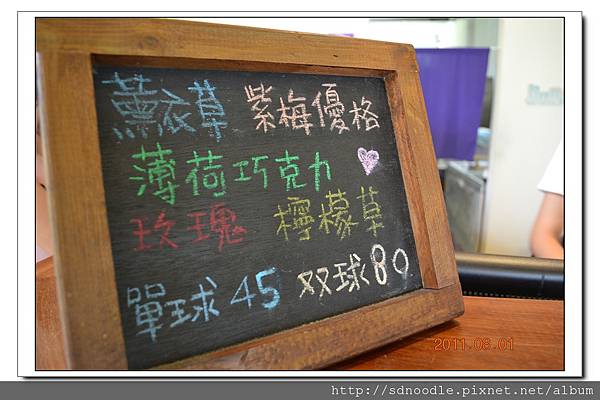 薰衣草 紫梅優格
薄荷巧克力
玫瑰 檸檬草
單球45 双球80
2011.08.01
http://sdnoodle.pixnet.net/album